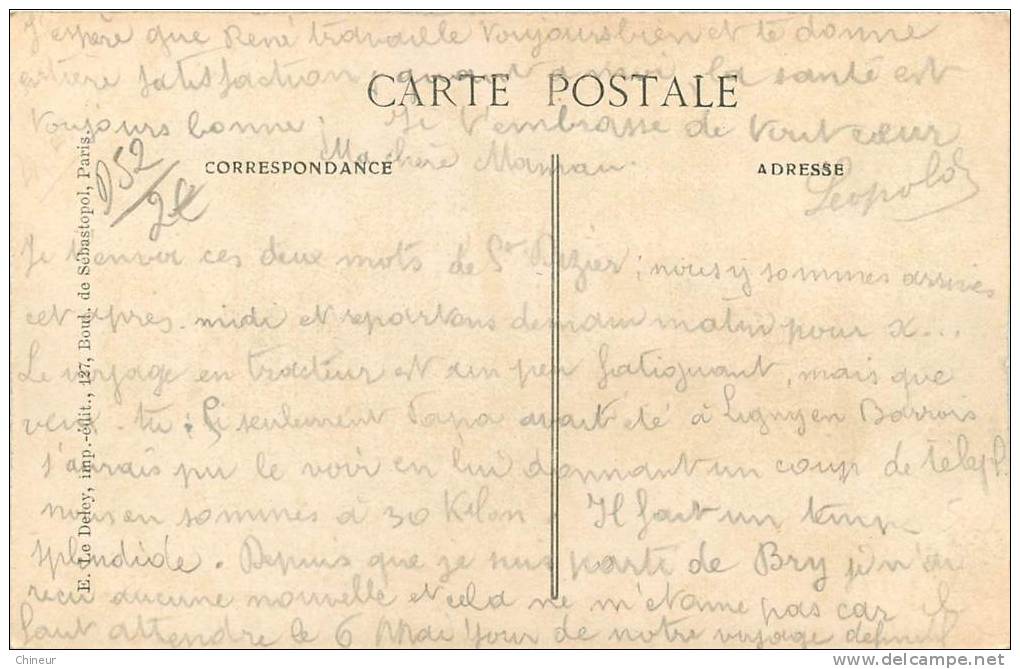 J'espère que René travaille toujours bien et te donne
entière satisfaction, quant a moi, la santé est
CARTE POSTALE
toujours bonne; Je t'embrasse de tout cœur
Léopold
CORRESPONDANCE
ADRESSE
D52/2€
E. Le Deley, imp.-édit., 127, Boul. de Sébastopol, Paris.
Ma chère Maman.
Je t'envoi ces deux mots de St Dizier; nous y sommes arrivés
cet après-midi et repartons demain matin pour X...
Le voyage en tracteur est un peu fatiguant, mais que
veux-tu; Si seulement Papa avait été à Ligny en Barrois
j'aurais pu le voir en lui donnant un coup de téleph.
nous en sommes à 30 Kilom. Il fait un temps
splendide. Depuis que je suis parti de Bry je n'ai
reçu aucune nouvelle et cela ne m'étonne pas car il
faut attendre le 6 Mai jour de notre voyage définitif
Chineur
www.delcampe.net